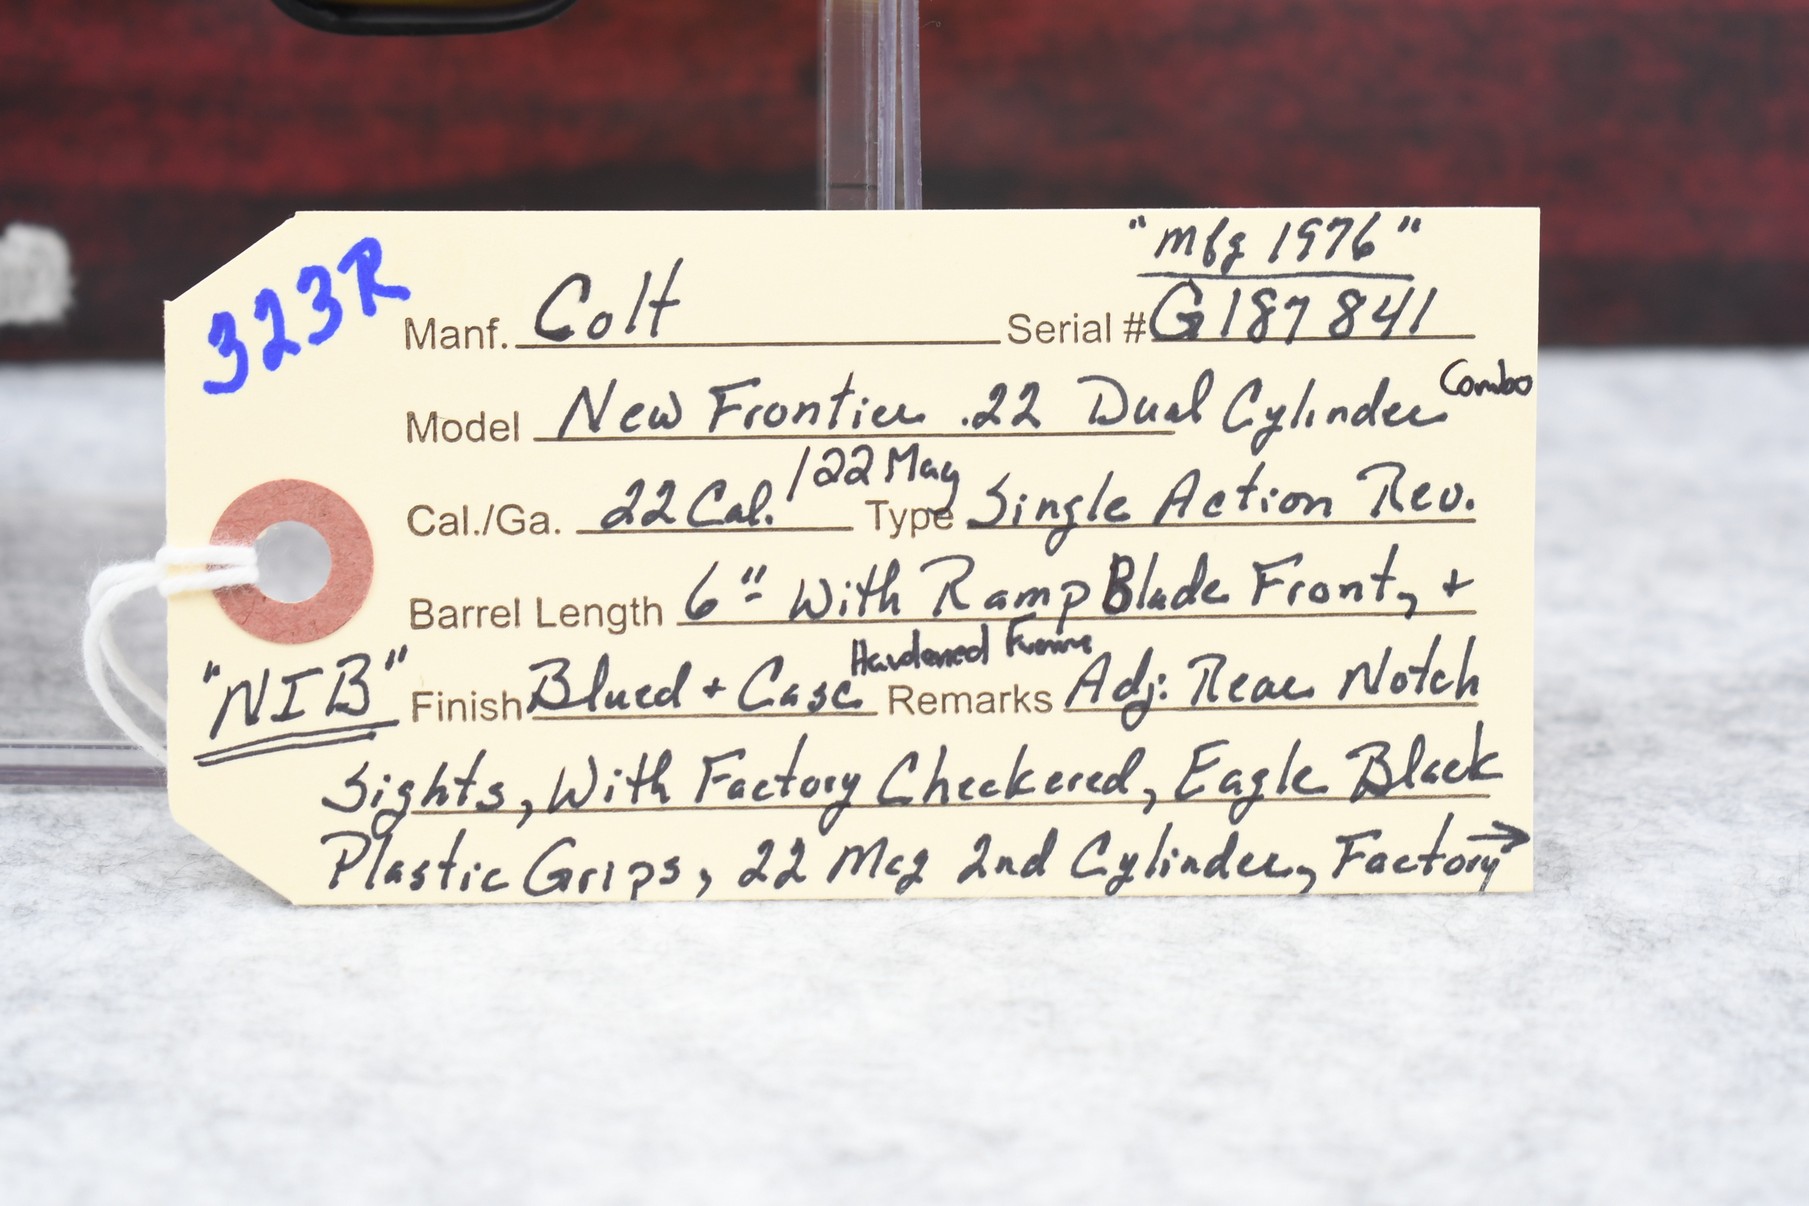 323R
"Mfg 1976"
Manf. Colt Serial # G187841
Model New Frontier .22 Dual Cylinder Combo
Cal./Ga. 22 Cal. / 22 Mag Type Single Action Rev.
Barrel Length 6" With Ramp Blade Front, +
"NIB" Finish Blued + Case Hardened Frame Remarks Adj: Rear Notch
Sights, With Factory Checkered, Eagle Black
Plastic Grips, 22 Mag 2nd Cylinder, Factory →